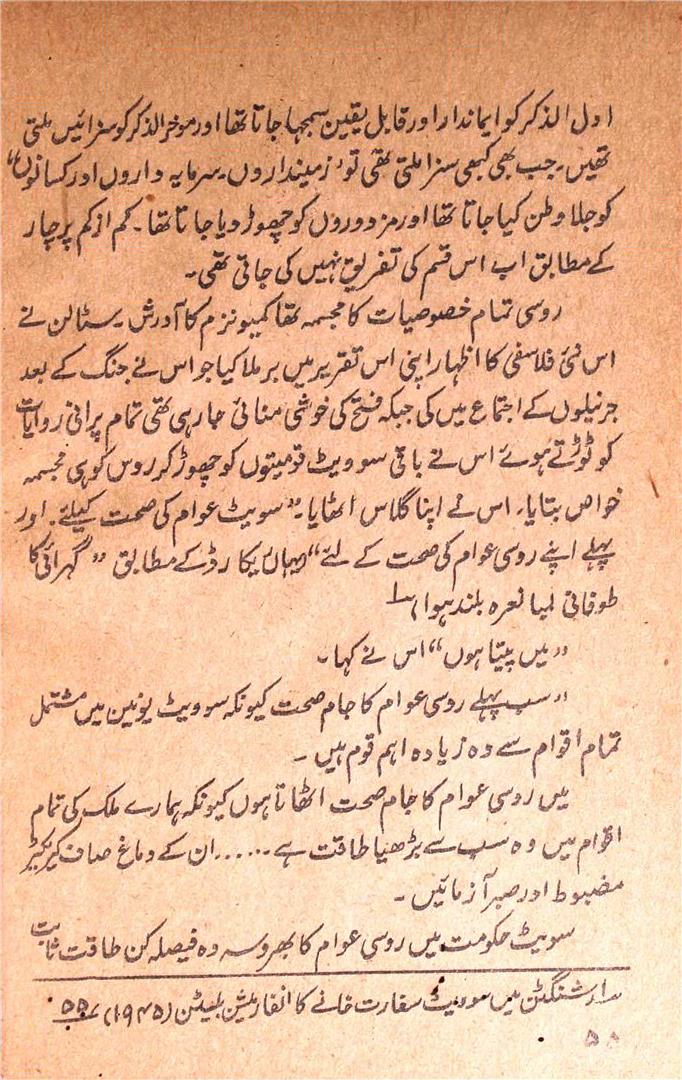 اول الذکر کو ایماندار اور قابل یقین سمجھا جاتا تھا اور موخر الذکر کو سزائیں ملتی
تھیں۔ جب بھی کبھی سزا ملتی تھی تو "زمینداروں۔ سرمایہ داروں اور کسانوں"
کو جلا وطن کیا جاتا تھا اور مزدوروں کو چھوڑ دیا جاتا تھا۔ کم از کم پرچار
کے مطابق اب اس قسم کی تفریق نہیں کی جاتی تھی۔
روسی تمام خصوصیات کا مجسمہ تھا کمیونزم کا آدرش۔ سٹالن نے
اس نئی فلاسفی کا اظہار اپنی اس تقریر میں برملا کیا جو اس نے جنگ کے بعد
جرنیلوں کے اجتماع میں کی جبکہ فتح کی خوشی منائی جا رہی تھی تمام پرانی روایات
کو توڑتے ہوئے اس نے باقی سوویٹ قومیتوں کو چھوڑ کر روس کو ہی مجسمہ
خواص بتایا۔ اس نے اپنا گلاس اٹھایا۔ "سویٹ عوام کی صحت کیلئے۔ اور
پہلے اپنے روسی عوام کی صحت کے لئے" یہاں ریکارڈ کے مطابق "گہرائی کا
طوفانی لمبا نعرہ بلند ہوا"
"میں پیتا ہوں" اس نے کہا۔
"سب پہلے روسی عوام کا جام صحت کیونکہ سوویٹ یونین میں مشتمل
تمام اقوام سے وہ زیادہ اہم قوم ہیں۔
میں روسی عوام کا جام صحت اٹھاتا ہوں کیونکہ ہمارے ملک کی تمام
اقوام میں وہ سب سے بڑھیا طاقت ہے ...... ان کے دماغ صاف کیرکٹیر
مضبوط اور صبر آزمائیں۔
سویٹ حکومت میں روسی عوام کا بھروسہ وہ فیصلہ کن طاقت ثابت
واشنگٹن میں سوویٹ سفارت خانے کا انفارمیشن بلیٹن (۱۹۴۵)